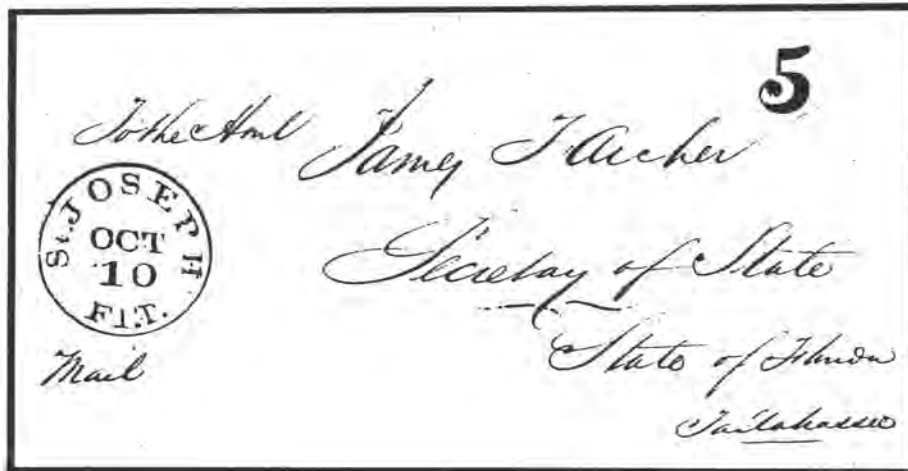 5
To the Honl
James T Archer
St. JOSEPH
OCT
10
Fl.T.
Secretary of State
State of Florida
Mail
Tallahassee